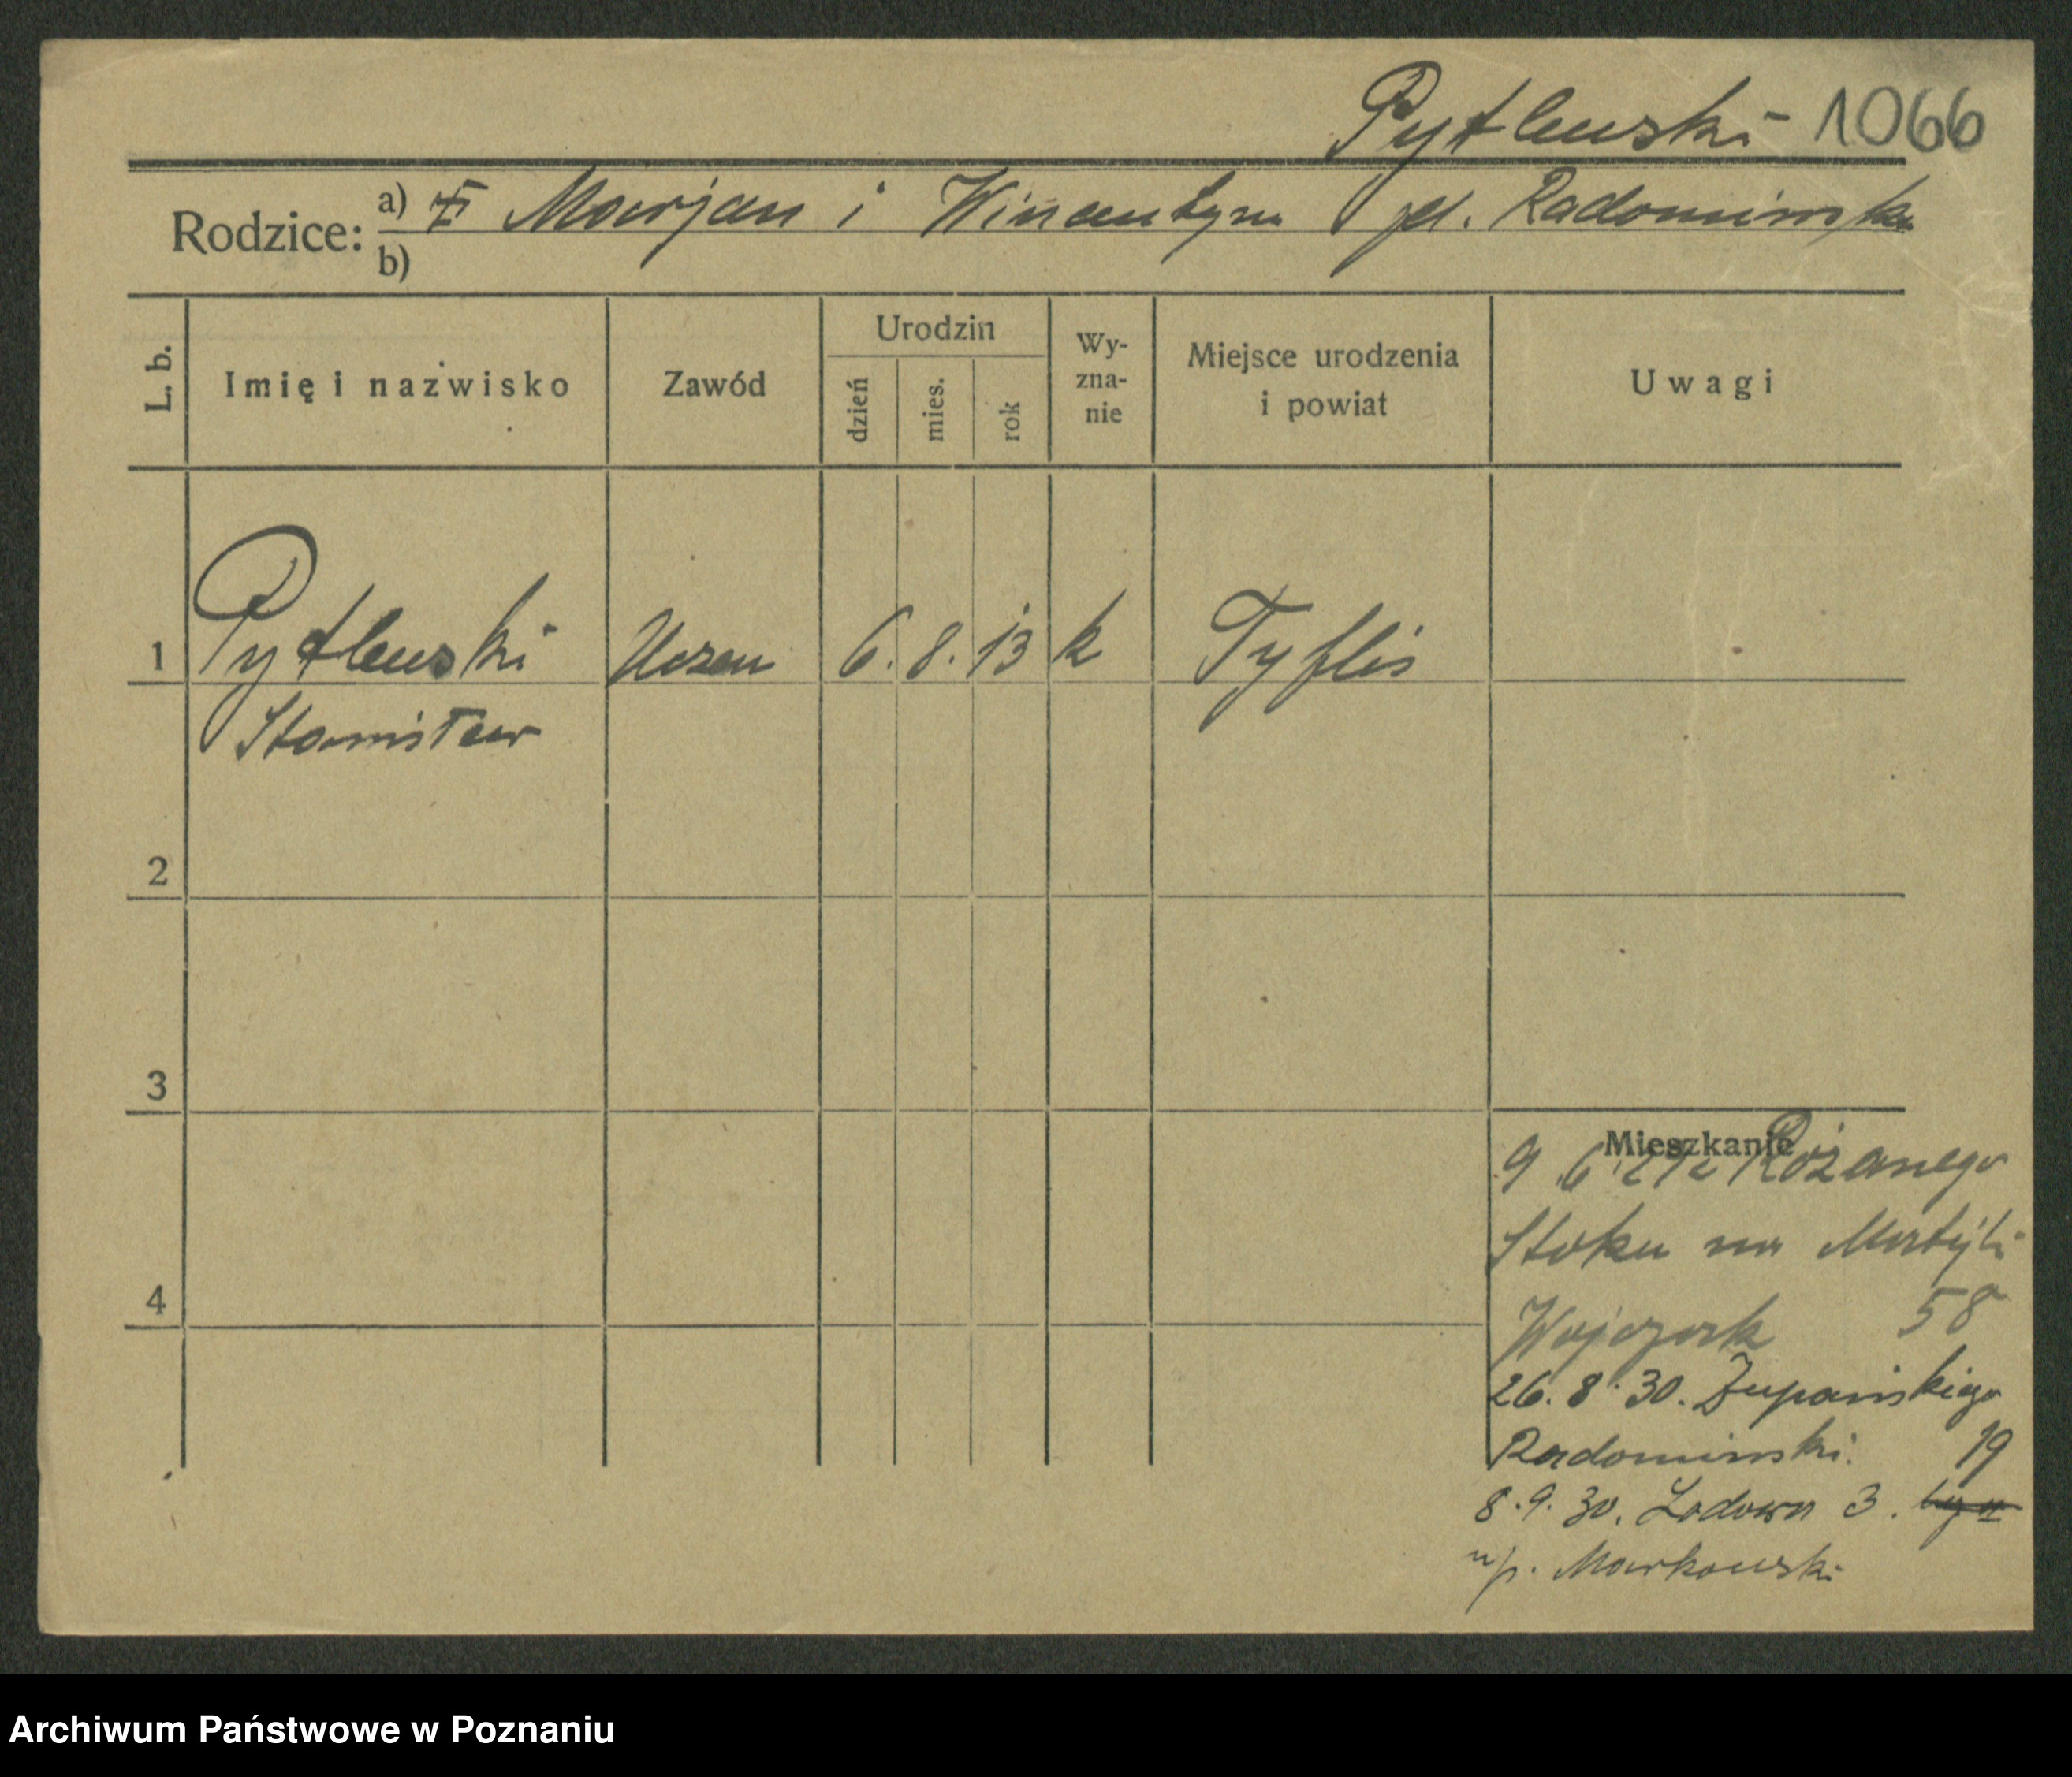 Pytlewski 1066
Rodzice: a) Marjan i Wincentyna Radomińska
b)
L. b.
Imię i nazwisko
Zawód
Urodzin
dzień
mies.
rok
Wy-
zna-
nie
Miejsce urodzenia
i powiat
Uwagi
1 Pytlewski Uczeń 6. 8. 13 k Tyflis
Stanisław
2
3
4
Mieszkanie
9 6 Różanego
Stoku na
58
26. 8. 30. Żupańskiego
Radomiński. 19
8. 9. 30. 3.
u/p. Markowski
Archiwum Państwowe w Poznaniu